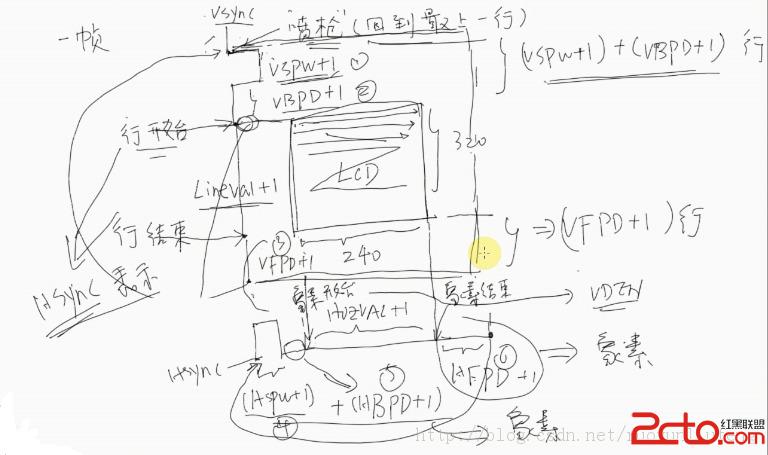 VSync
"喷枪"(回到最上一行)
一帧
VSPW+1 ①
(VSPW+1)+(VBPD+1) 行
VBPD+1 ②
行开始
320
LCD
Lineval+1
行结束
③
VFPD+1
240
⇒(VFPD+1)行
HSync 表示
象素开始
象素结束
VDEN
HOZVAL+1
HSync
象素
HFPD+1 ⑥
(HSPW+1) + (HBPD+1)
④
⑤
象素
http://blog.csdn.net/
2cto.com
红黑联盟